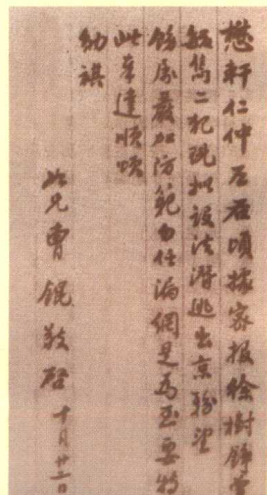 懋軒仁仲左右頃據密報徐樹錚曾
毓雋二犯現擬設法潛逃出京務望
飭屬嚴加防範勿任漏網是為至要特
此奉達順頌
勛祺
如兄曹錕敬啓 十月廿二日